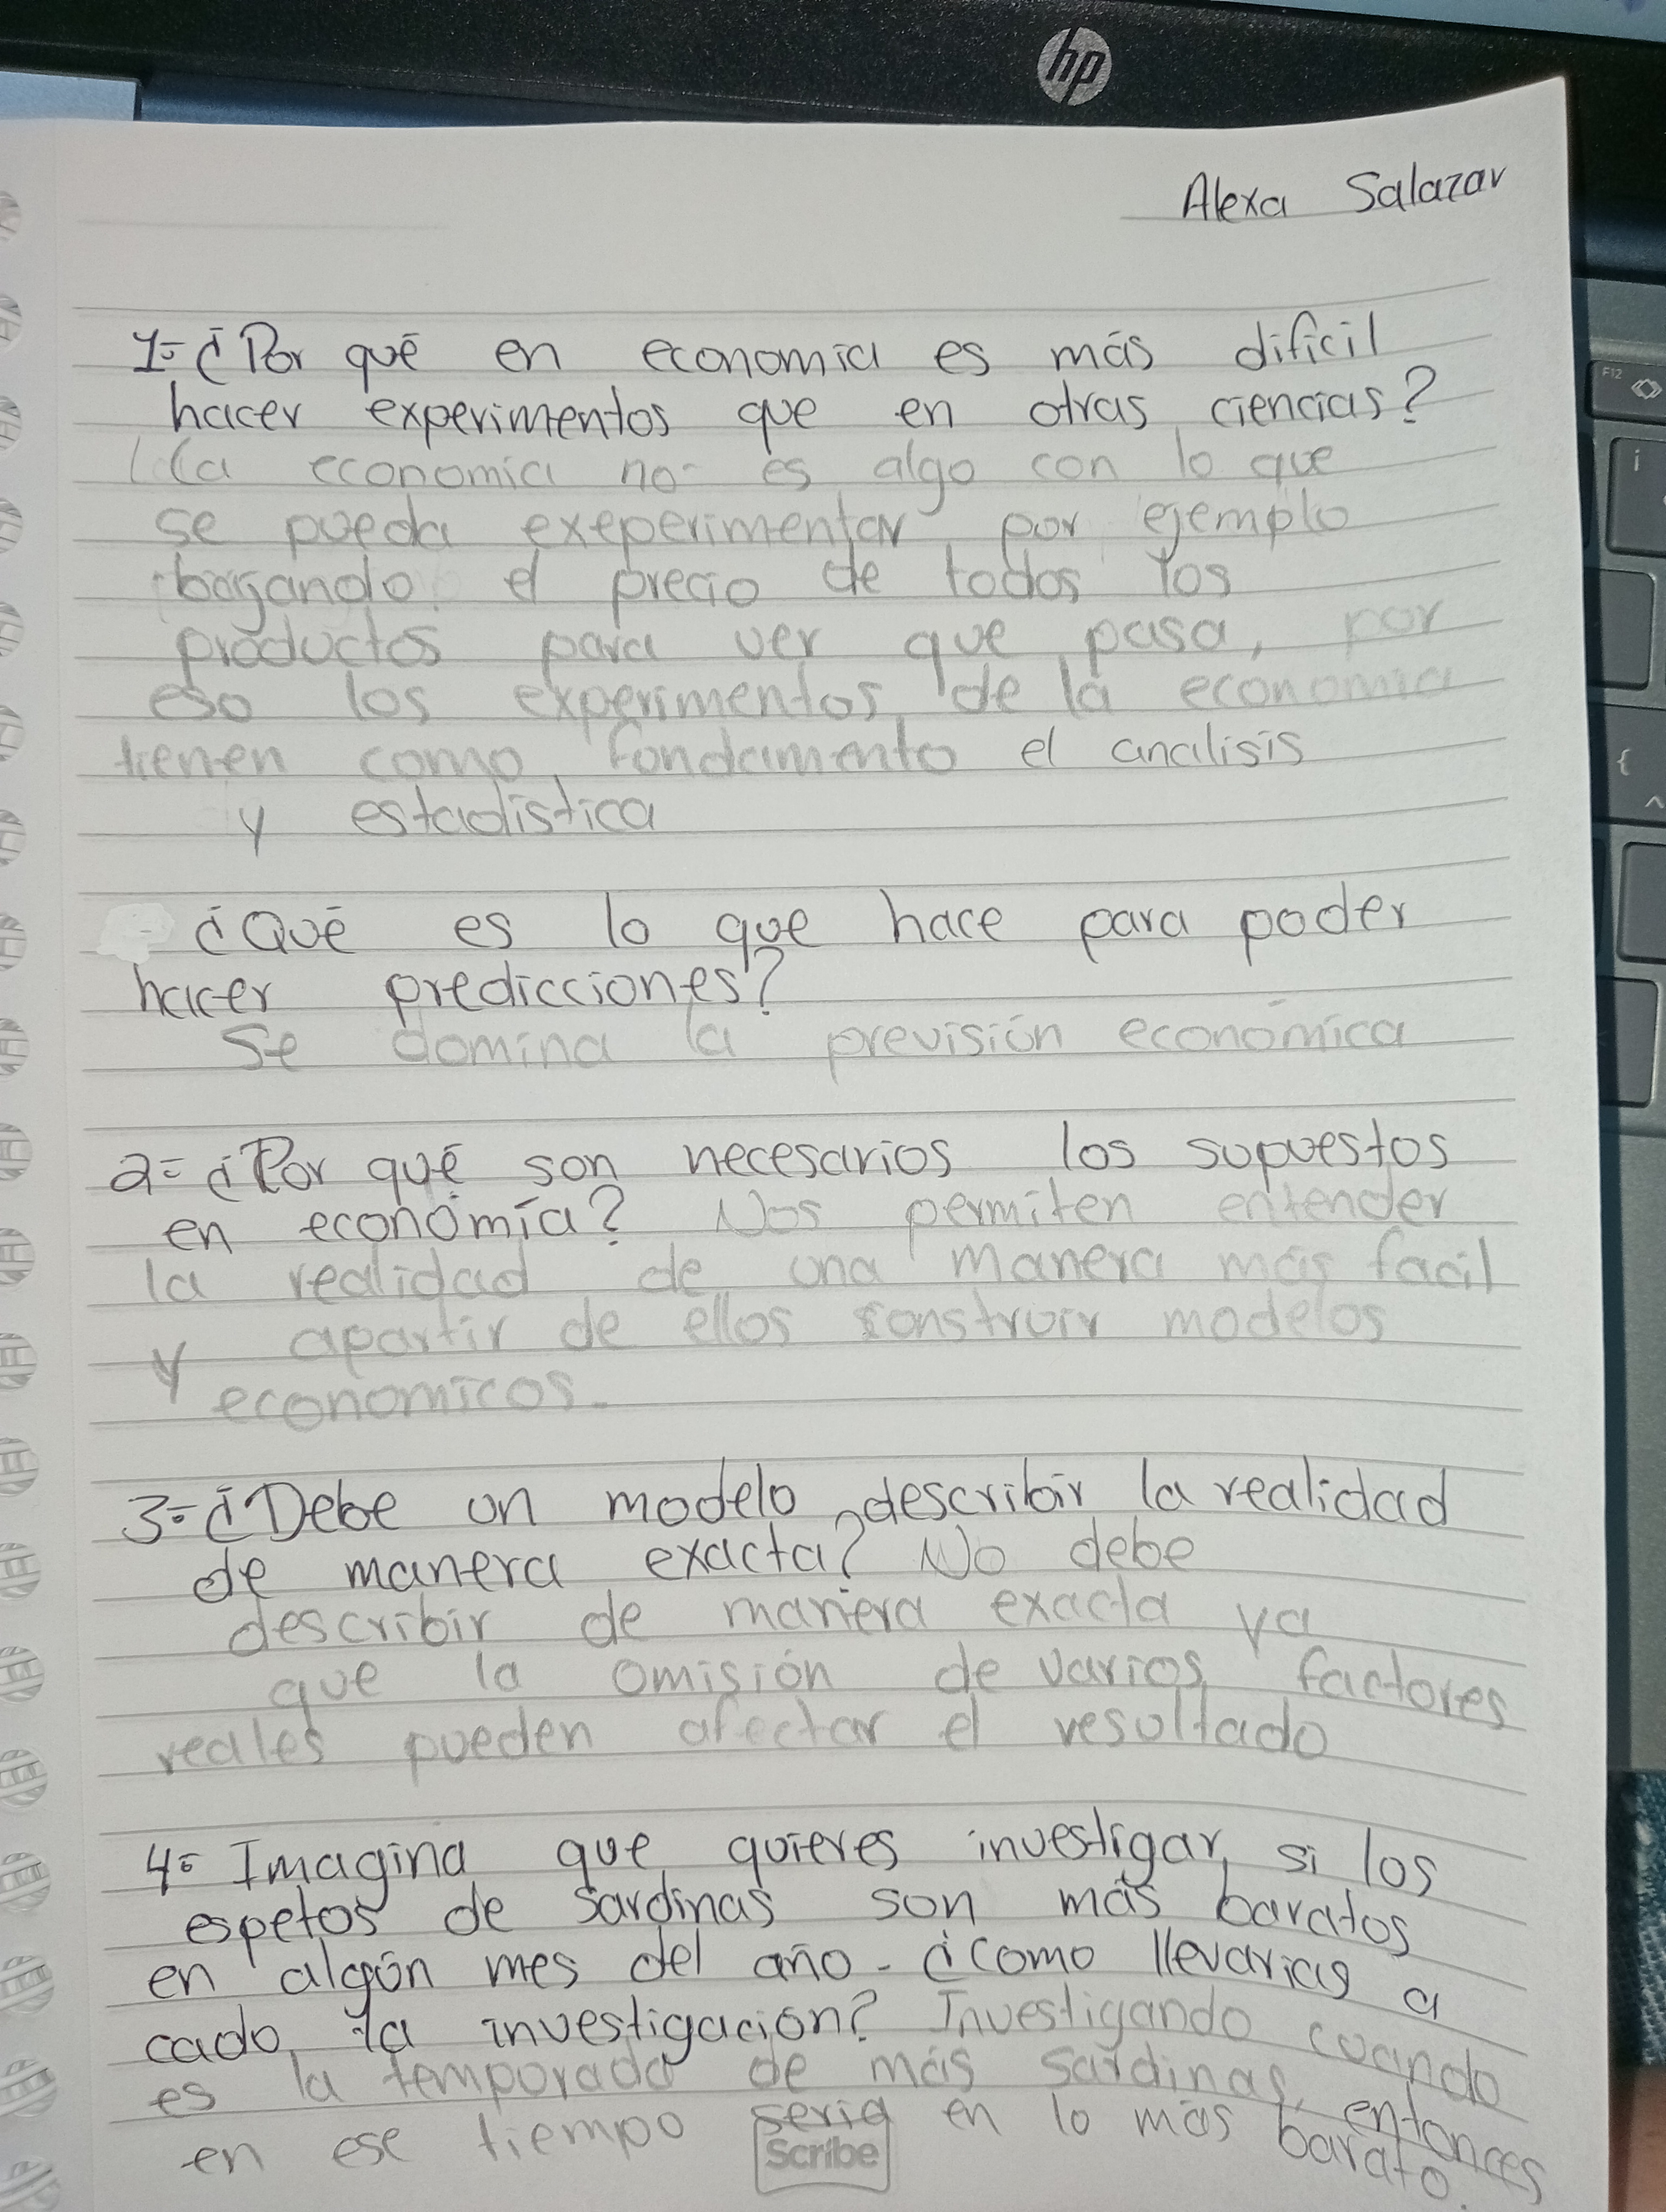 hp
Alexa Salazar
1= ¿Por qué en economia es más dificil
hacer experimentos que en otras ciencias?
La economia no es algo con lo que
se pueda exeperimentar por ejemplo
bajando el precio de todos los
productos para ver que pasa, por
eso los experimentos de la economia
tienen como fondamento el analisis
y estadística
¿Qué es lo que hace para poder
hacer predicciones?
Se domina la previsión económica
2= ¿Por qué son necesarios los supuestos
en economía? Nos permiten entender
la realidad de una manera más facil
y apartir de ellos construir modelos
economicos.
3= ¿Debe un modelo describir la realidad
de manera exacta? No debe
describir de manera exacta ya
que la omisión de varios factores
reales pueden afectar el resultado
4= Imagina que quieres investigar si los
espetos de sardinas son más baratos
en algún mes del año. ¿Como llevarias a
cado la investigación? Investigando cuando
es la temporada de más sardinas, entonces
en ese tiempo seria en lo más barato.
Scribe
F12
i
{
^